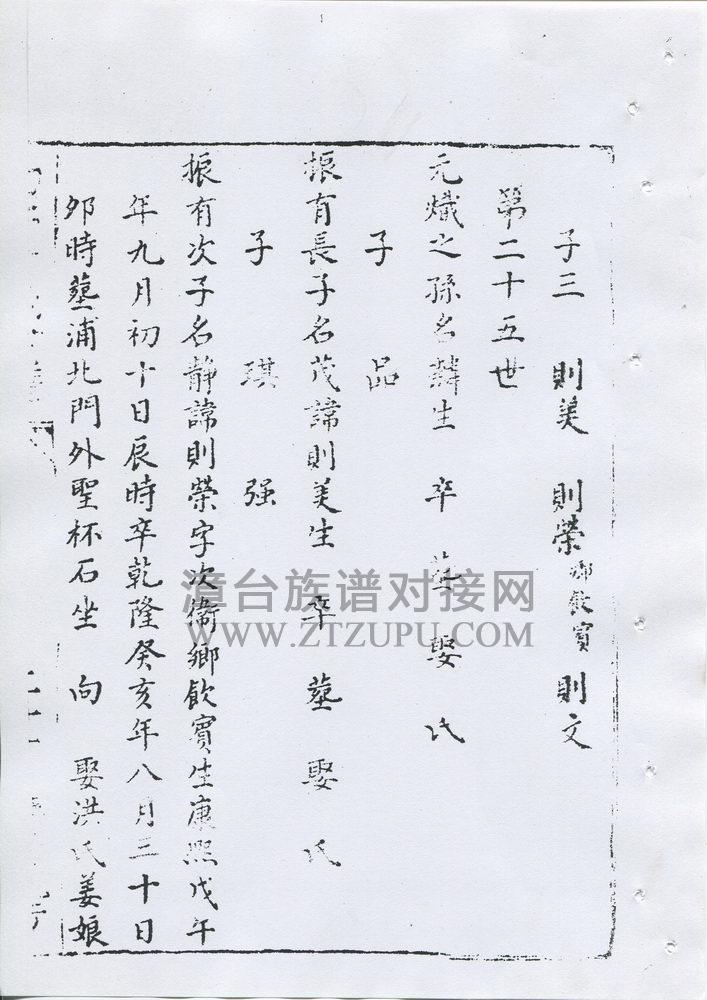 子三 則美 則榮鄉飲賓 則文
第二十五世
元熾之孫名麟生 卒 葬 娶 氏
子 品
振有長子名茂諱則美生 卒 墓 娶 氏
子 琪 强
振有次子名靜諱則榮字次衞鄉飲賓生康熙戊午
年九月初十日辰時卒乾隆癸亥年八月三十日
卯時墓浦北門外聖杯石坐 向 娶洪氏姜娘
漳台族谱对接网
WWW.ZTZUPU.COM